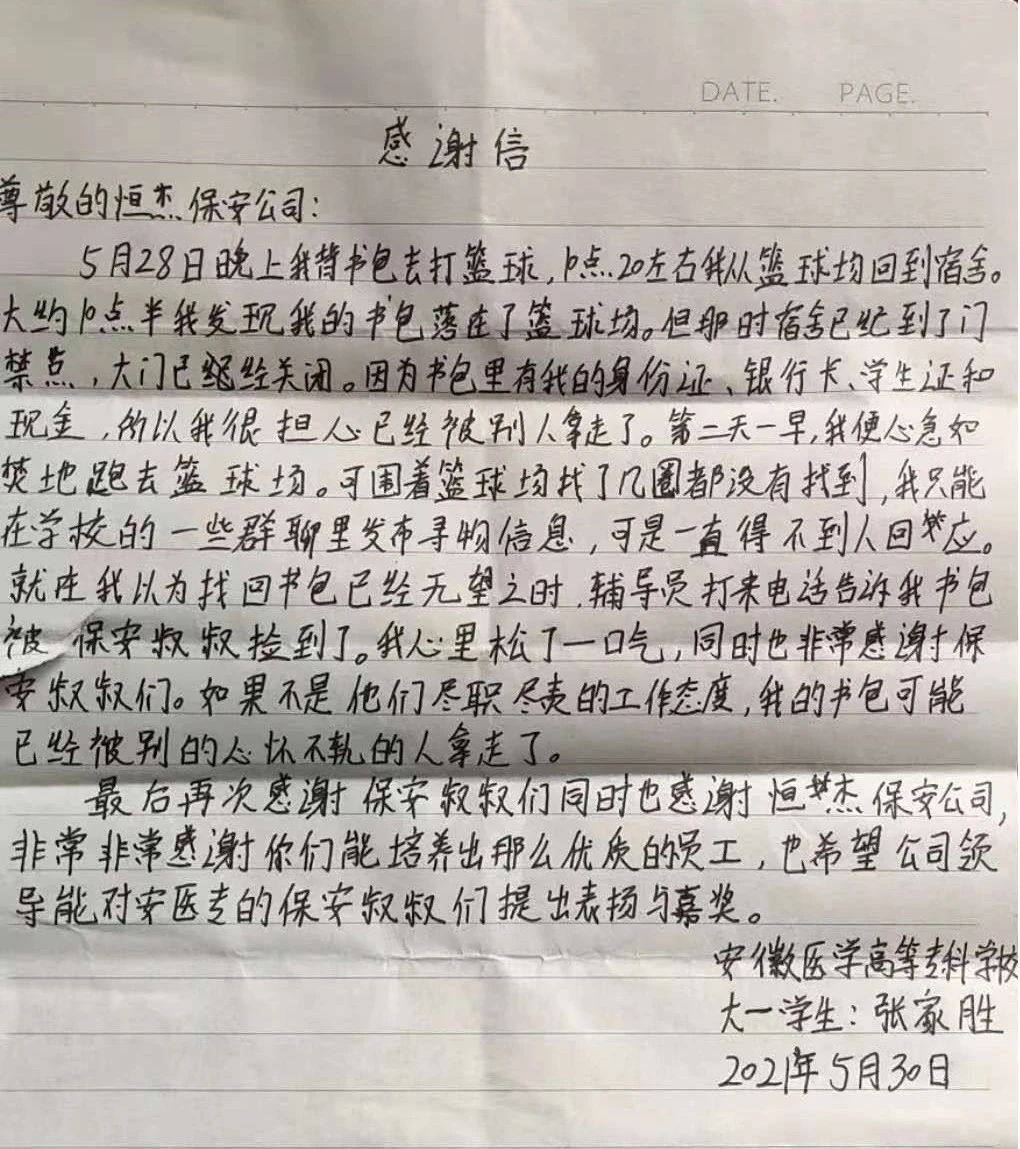 DATE. PAGE.
感谢信
尊敬的恒杰保安公司：
5月28日晚上我背书包去打篮球，10点20左右我从篮球场回到宿舍。
大约10点半我发现我的书包落在了篮球场。但那时宿舍已经到了门
禁点，大门已经关闭。因为书包里有我的身份证、银行卡、学生证和
现金，所以我很担心已经被别人拿走了。第二天一早，我便心急如
焚地跑去篮球场。可围着篮球场找了几圈都没有找到，我只能
在学校的一些群聊里发布寻物信息，可是一直得不到人回应。
就在我以为找回书包已经无望之时，辅导员打来电话告诉我书包
被保安叔叔捡到了。我心里松了一口气，同时也非常感谢保
安叔叔们。如果不是他们尽职尽责的工作态度，我的书包可能
已经被别的心怀不轨的人拿走了。
最后再次感谢保安叔叔们同时也感谢恒杰保安公司，
非常非常感谢你们能培养出那么优质的员工，也希望公司领
导能对安医专的保安叔叔们提出表扬与嘉奖。
安徽医学高等专科学校
大一学生：张家胜
2021年5月30日